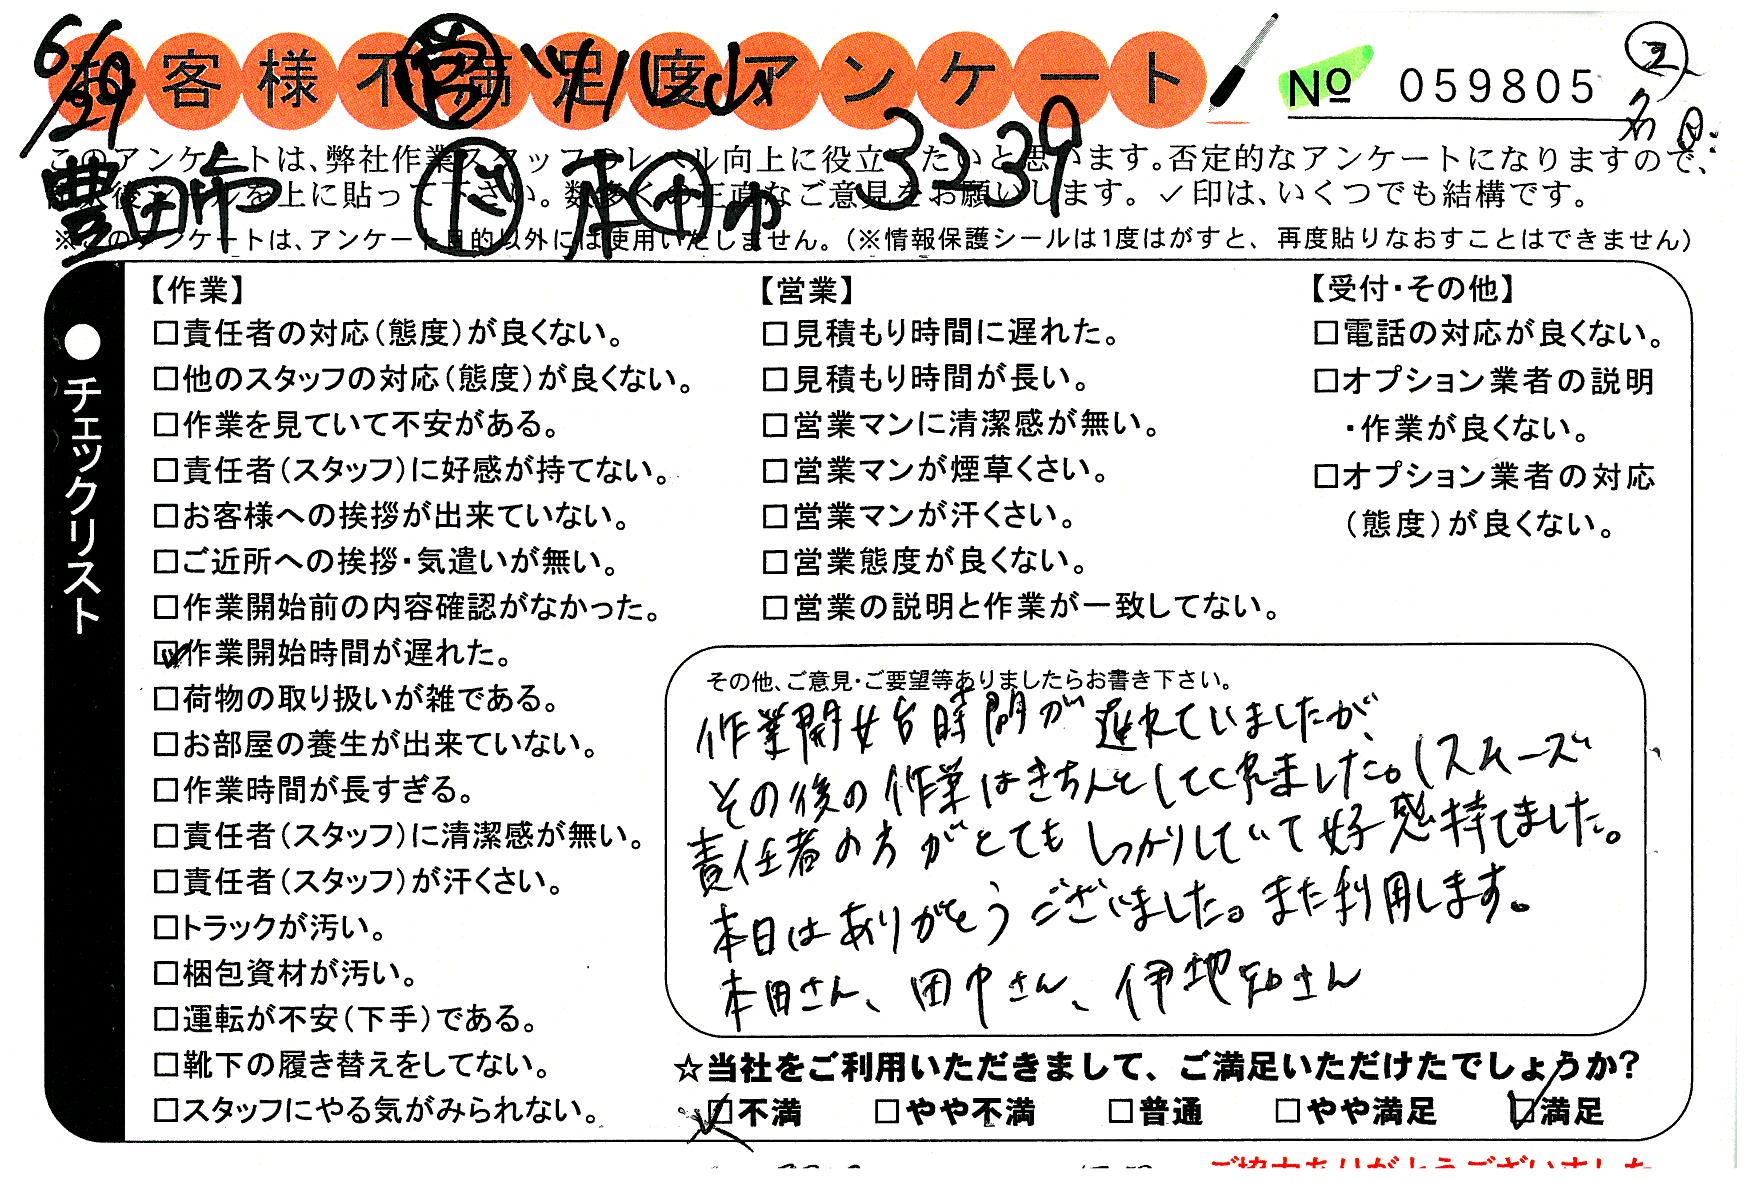 6/29
お客様不満足度アンケート
営
No 059805
名
豊田市
下 本田 3239
このアンケートは、弊社作業スタッフのレベル向上に役立てたいと思います。否定的なアンケートになりますので、
を上に貼って下さい。数多くの正直なご意見をお願いします。✓印は、いくつでも結構です。
※このアンケートは、アンケート目的以外には使用いたしません。(※情報保護シールは1度はがすと、再度貼りなおすことはできません)
●チェックリスト
【作業】
□責任者の対応(態度)が良くない。
□他のスタッフの対応(態度)が良くない。
□作業を見ていて不安がある。
□責任者(スタッフ)に好感が持てない。
□お客様への挨拶が出来ていない。
□ご近所への挨拶・気遣いが無い。
□作業開始前の内容確認がなかった。
☑作業開始時間が遅れた。
□荷物の取り扱いが雑である。
□お部屋の養生が出来ていない。
□作業時間が長すぎる。
□責任者(スタッフ)に清潔感が無い。
□責任者(スタッフ)が汗くさい。
□トラックが汚い。
□梱包資材が汚い。
□運転が不安(下手)である。
□靴下の履き替えをしてない。
□スタッフにやる気がみられない。
【営業】
□見積もり時間に遅れた。
□見積もり時間が長い。
□営業マンに清潔感が無い。
□営業マンが煙草くさい。
□営業マンが汗くさい。
□営業態度が良くない。
□営業の説明と作業が一致してない。
【受付・その他】
□電話の対応が良くない。
□オプション業者の説明
・作業が良くない。
□オプション業者の対応
(態度)が良くない。
その他、ご意見・ご要望等ありましたらお書き下さい。
作業開始時間が遅れていましたが、
その後の作業はきちんとしてくれました。(スムーズ
責任者の方がとてもしっかりしていて好感持てました。
本日はありがとうございました。また利用します。
本田さん、田中さん、伊地知さん
☆当社をご利用いただきまして、ご満足いただけたでしょうか?
☑不満 □やや不満 □普通 □やや満足 ☑満足
ご協力ありがとうございました